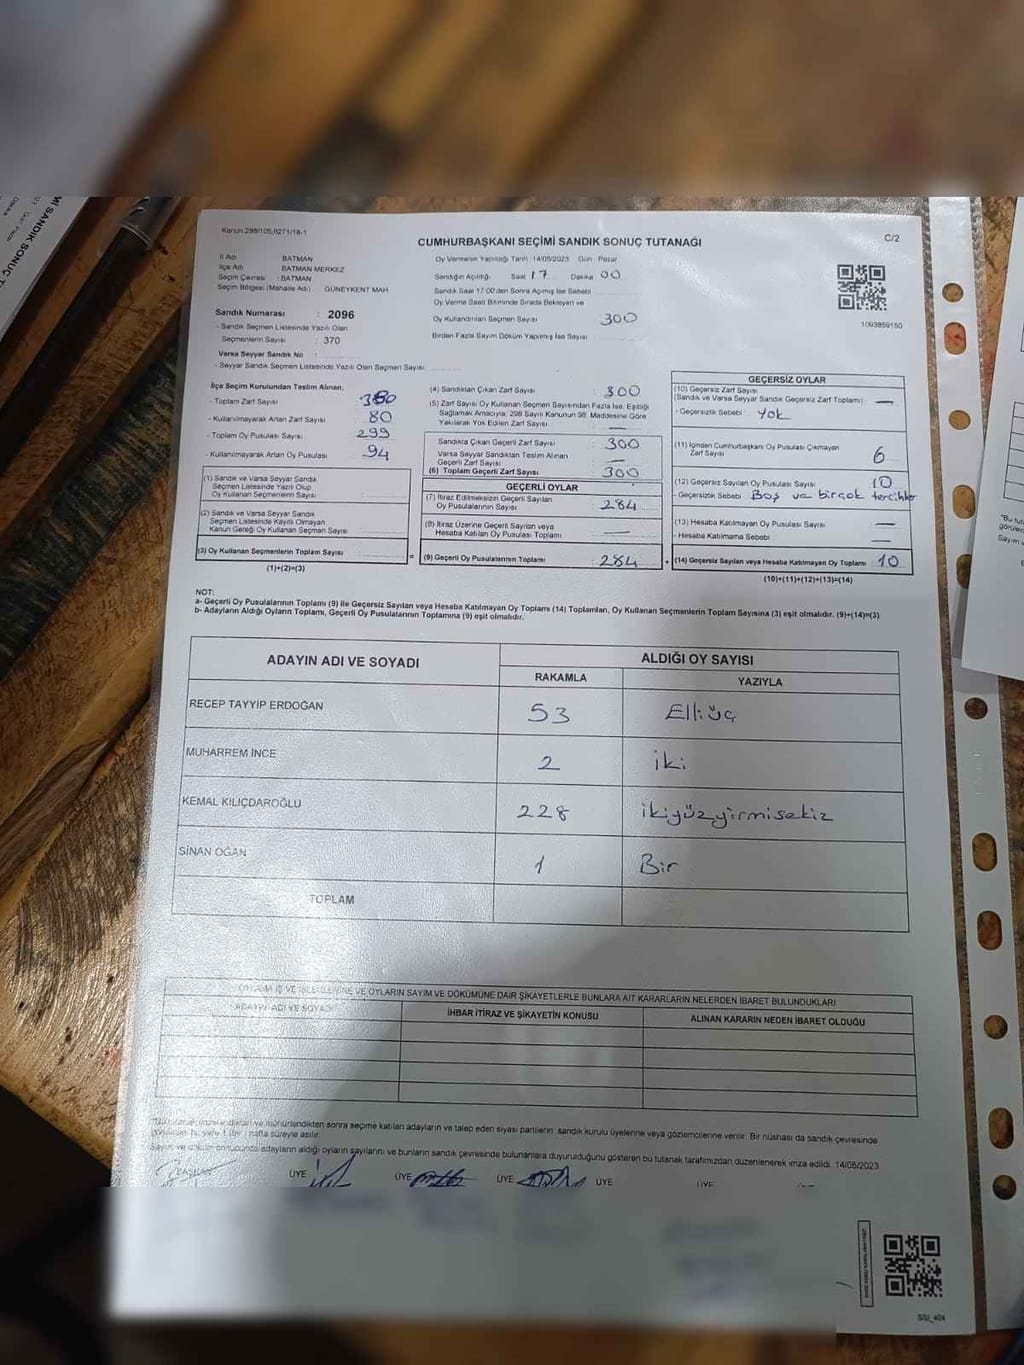 Kanun 298/105,6271/18-1
CUMHURBAŞKANI SEÇİMİ SANDIK SONUÇ TUTANAĞI
C/2
İl Adı : BATMAN
İlçe Adı : BATMAN MERKEZ
Seçim Çevresi : BATMAN
Seçim Bölgesi (Mahalle Adı) : GÜNEYKENT MAH
Sandık Numarası : 2096
- Sandık Seçmen Listesinde Yazılı Olan
Seçmenlerin Sayısı : 370
Varsa Seyyar Sandık No :
- Seyyar Sandık Seçmen Listesinde Yazılı Olan Seçmen Sayısı
Oy Vermenin Yapıldığı Tarih : 14/05/2023 Gün : Pazar
Sandığın Açıldığı Saat 17 Dakika 00
Sandık Saat 17:00'den Sonra Açılmış İse Sebebi
Oy Verme Saati Bitiminde Sırada Bekleyen ve
Oy Kullandırılan Seçmen Sayısı 300
Birden Fazla Sayım Döküm Yapılmış İse Sayısı
1093859150
İlçe Seçim Kurulundan Teslim Alınan;
- Toplam Zarf Sayısı : 380
- Kullanılmayarak Artan Zarf Sayısı : 80
- Toplam Oy Pusulası Sayısı : 299
- Kullanılmayarak Artan Oy Pusulası : 94
(1) Sandık ve Varsa Seyyar Sandık
Seçmen Listesinde Yazılı Olup
Oy Kullanan Seçmenlerin Sayısı :
(2) Sandık ve Varsa Seyyar Sandık
Seçmen Listesinde Kayıtlı Olmayan
Kanun Gereği Oy Kullanan Seçmen Sayısı
(3) Oy Kullanan Seçmenlerin Toplam Sayısı
(1)+(2)=(3)
(4) Sandıktan Çıkan Zarf Sayısı : 300
(5) Zarf Sayısı Oy Kullanan Seçmen Sayısından Fazla İse, Eşitliği
Sağlamak Amacıyla; 298 Sayılı Kanunun 98. Maddesine Göre
Yakılarak Yok Edilen Zarf Sayısı : —
Sandıkta Çıkan Geçerli Zarf Sayısı : 300
Varsa Seyyar Sandıktan Teslim Alınan
Geçerli Zarf Sayısı : —
(6) Toplam Geçerli Zarf Sayısı : 300
GEÇERLİ OYLAR
(7) İtiraz Edilmeksizin Geçerli Sayılan
Oy Pusulalarının Sayısı : 284
(8) İtiraz Üzerine Geçerli Sayılan veya
Hesaba Katılan Oy Pusulası Toplamı : —
(9) Geçerli Oy Pusulalarının Toplamı : 284
GEÇERSİZ OYLAR
(10) Geçersiz Zarf Sayısı
(Sandık ve Varsa Seyyar Sandık Geçersiz Zarf Toplamı) : —
- Geçersizlik Sebebi : Yok
(11) İçinden Cumhurbaşkanı Oy Pusulası Çıkmayan
Zarf Sayısı : 6
(12) Geçersiz Sayılan Oy Pusulası Sayısı : 10
- Geçersizlik Sebebi : Boş ve birçok tercihler
(13) Hesaba Katılmayan Oy Pusulası Sayısı : —
- Hesaba Katılmama Sebebi : —
(14) Geçersiz Sayılan veya Hesaba Katılmayan Oy Toplamı : 10
(10)+(11)+(12)+(13)=(14)
NOT:
a- Geçerli Oy Pusulalarının Toplamı (9) ile Geçersiz Sayılan veya Hesaba Katılmayan Oy Toplamı (14) Toplamları, Oy Kullanan Seçmenlerin Toplam Sayısına (3) eşit olmalıdır. (9)+(14)=(3)
b- Adayların Aldığı Oyların Toplamı, Geçerli Oy Pusulalarının Toplamına (9) eşit olmalıdır.
ADAYIN ADI VE SOYADI
ALDIĞI OY SAYISI
RAKAMLA YAZIYLA
RECEP TAYYİP ERDOĞAN 53 Elliüç
MUHARREM İNCE 2 iki
KEMAL KILIÇDAROĞLU 228 ikiyüzyirmisekiz
SİNAN OĞAN 1 Bir
TOPLAM
VE OYLARIN SAYIM VE DÖKÜMÜNE DAİR ŞİKAYETLERLE BUNLARA AİT KARARLARIN NELERDEN İBARET BULUNDUKLARI
ADAYIN ADI VE SOYADI İHBAR İTİRAZ VE ŞİKAYETİN KONUSU ALINAN KARARIN NEDEN İBARET OLDUĞU
sonra seçime katılan adayların ve talep eden siyasi partilerin: sandık kurulu üyelerine veya gözlemcilerine verilir. Bir nüshası da sandık çevresinde
hafta süreyle asılır.
adayların aldığı oyların sayılarını ve bunların sandık çevresinde bulunanlara duyurulduğunu gösteren bu tutanak tarafımızdan düzenlenerek imza edildi. 14/05/2023
BAŞKAN ÜYE ÜYE ÜYE ÜYE ÜYE
SSİ_404